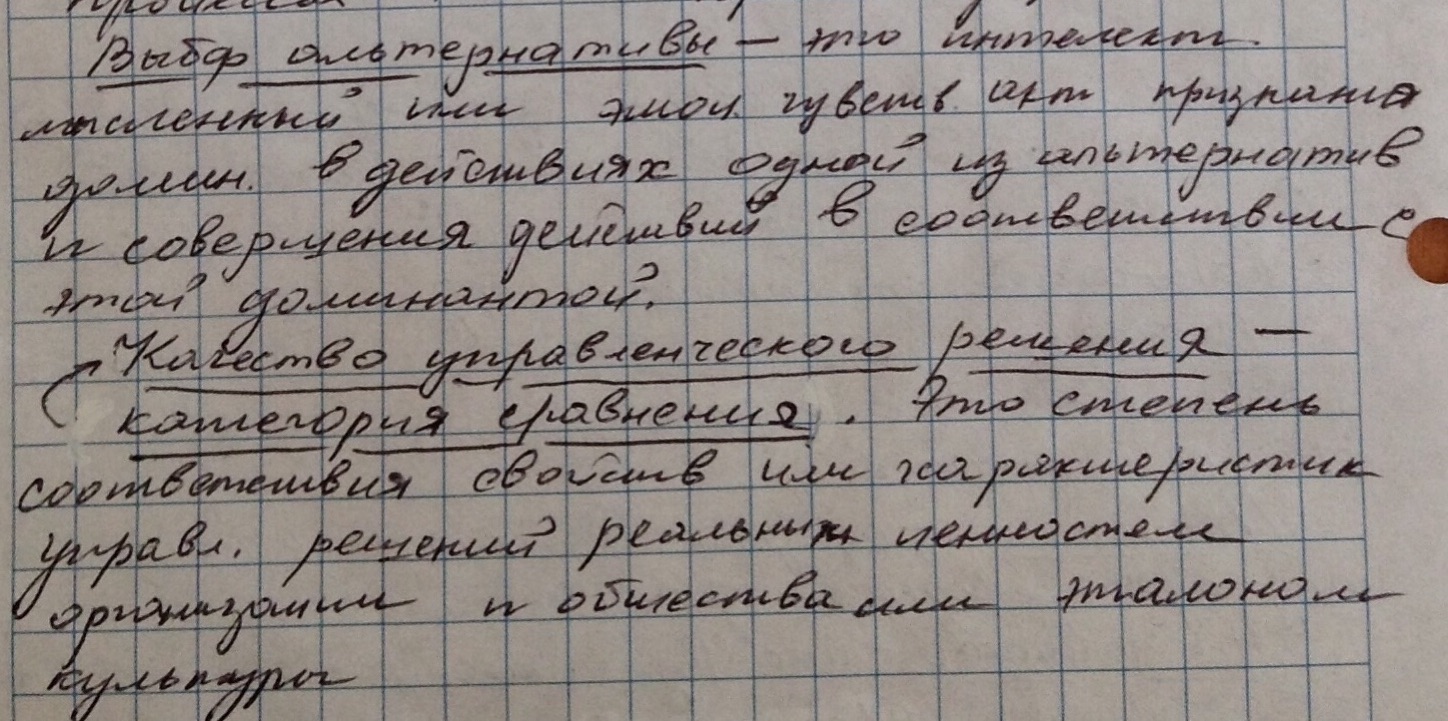 Выбор альтернативы – это интелект.
мысленный или эмоц. чувств. акт признания
домин. в действиях одной из альтернатив
и совершения действий в соответствии с
этой доминантой.
Качество управленческого решения –
категория сравнения. Это степень
соответствия свойств или характеристик
управл. решений реальным ценностям
организации и общества или эталоном
культуры